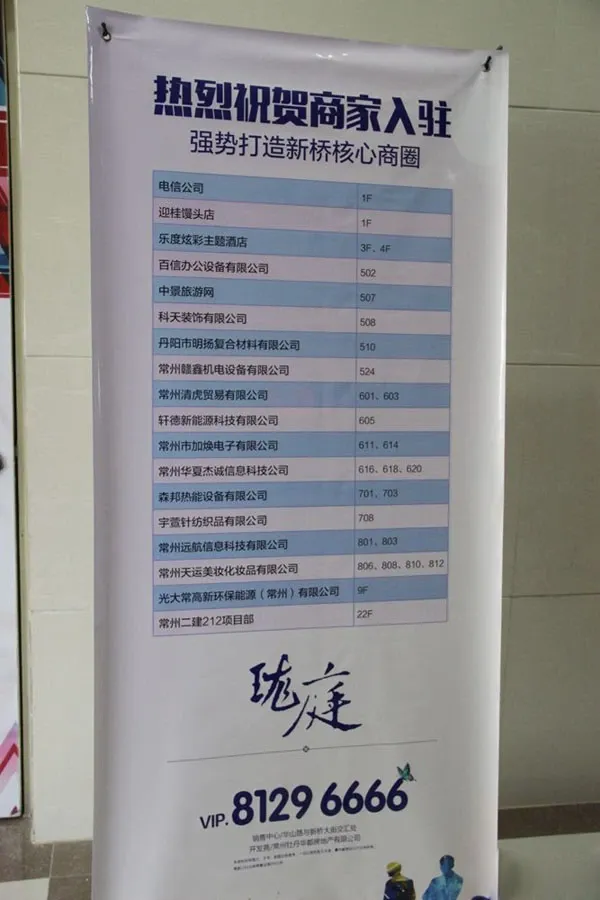 热烈祝贺商家入驻
强势打造新桥核心商圈
电信公司 1F
迎桂馒头店 1F
乐度炫彩主题酒店 3F、4F
百信办公设备有限公司 502
中景旅游网 507
科天装饰有限公司 508
丹阳市明扬复合材料有限公司 510
常州赣鑫机电设备有限公司 524
常州清虎贸易有限公司 601、603
轩德新能源科技有限公司 605
常州市加焕电子有限公司 611、614
常州华夏杰诚信息科技公司 616、618、620
森邦热能设备有限公司 701、703
宇萱针纺织品有限公司 708
常州远航信息科技有限公司 801、803
常州天运美妆化妆品有限公司 806、808、810、812
光大常高新环保能源（常州）有限公司 9F
常州二建212项目部 22F
珑庭
VIP. 8129 6666
销售中心/华山路与新桥大街交汇处
开发商/常州牡丹华都房地产有限公司